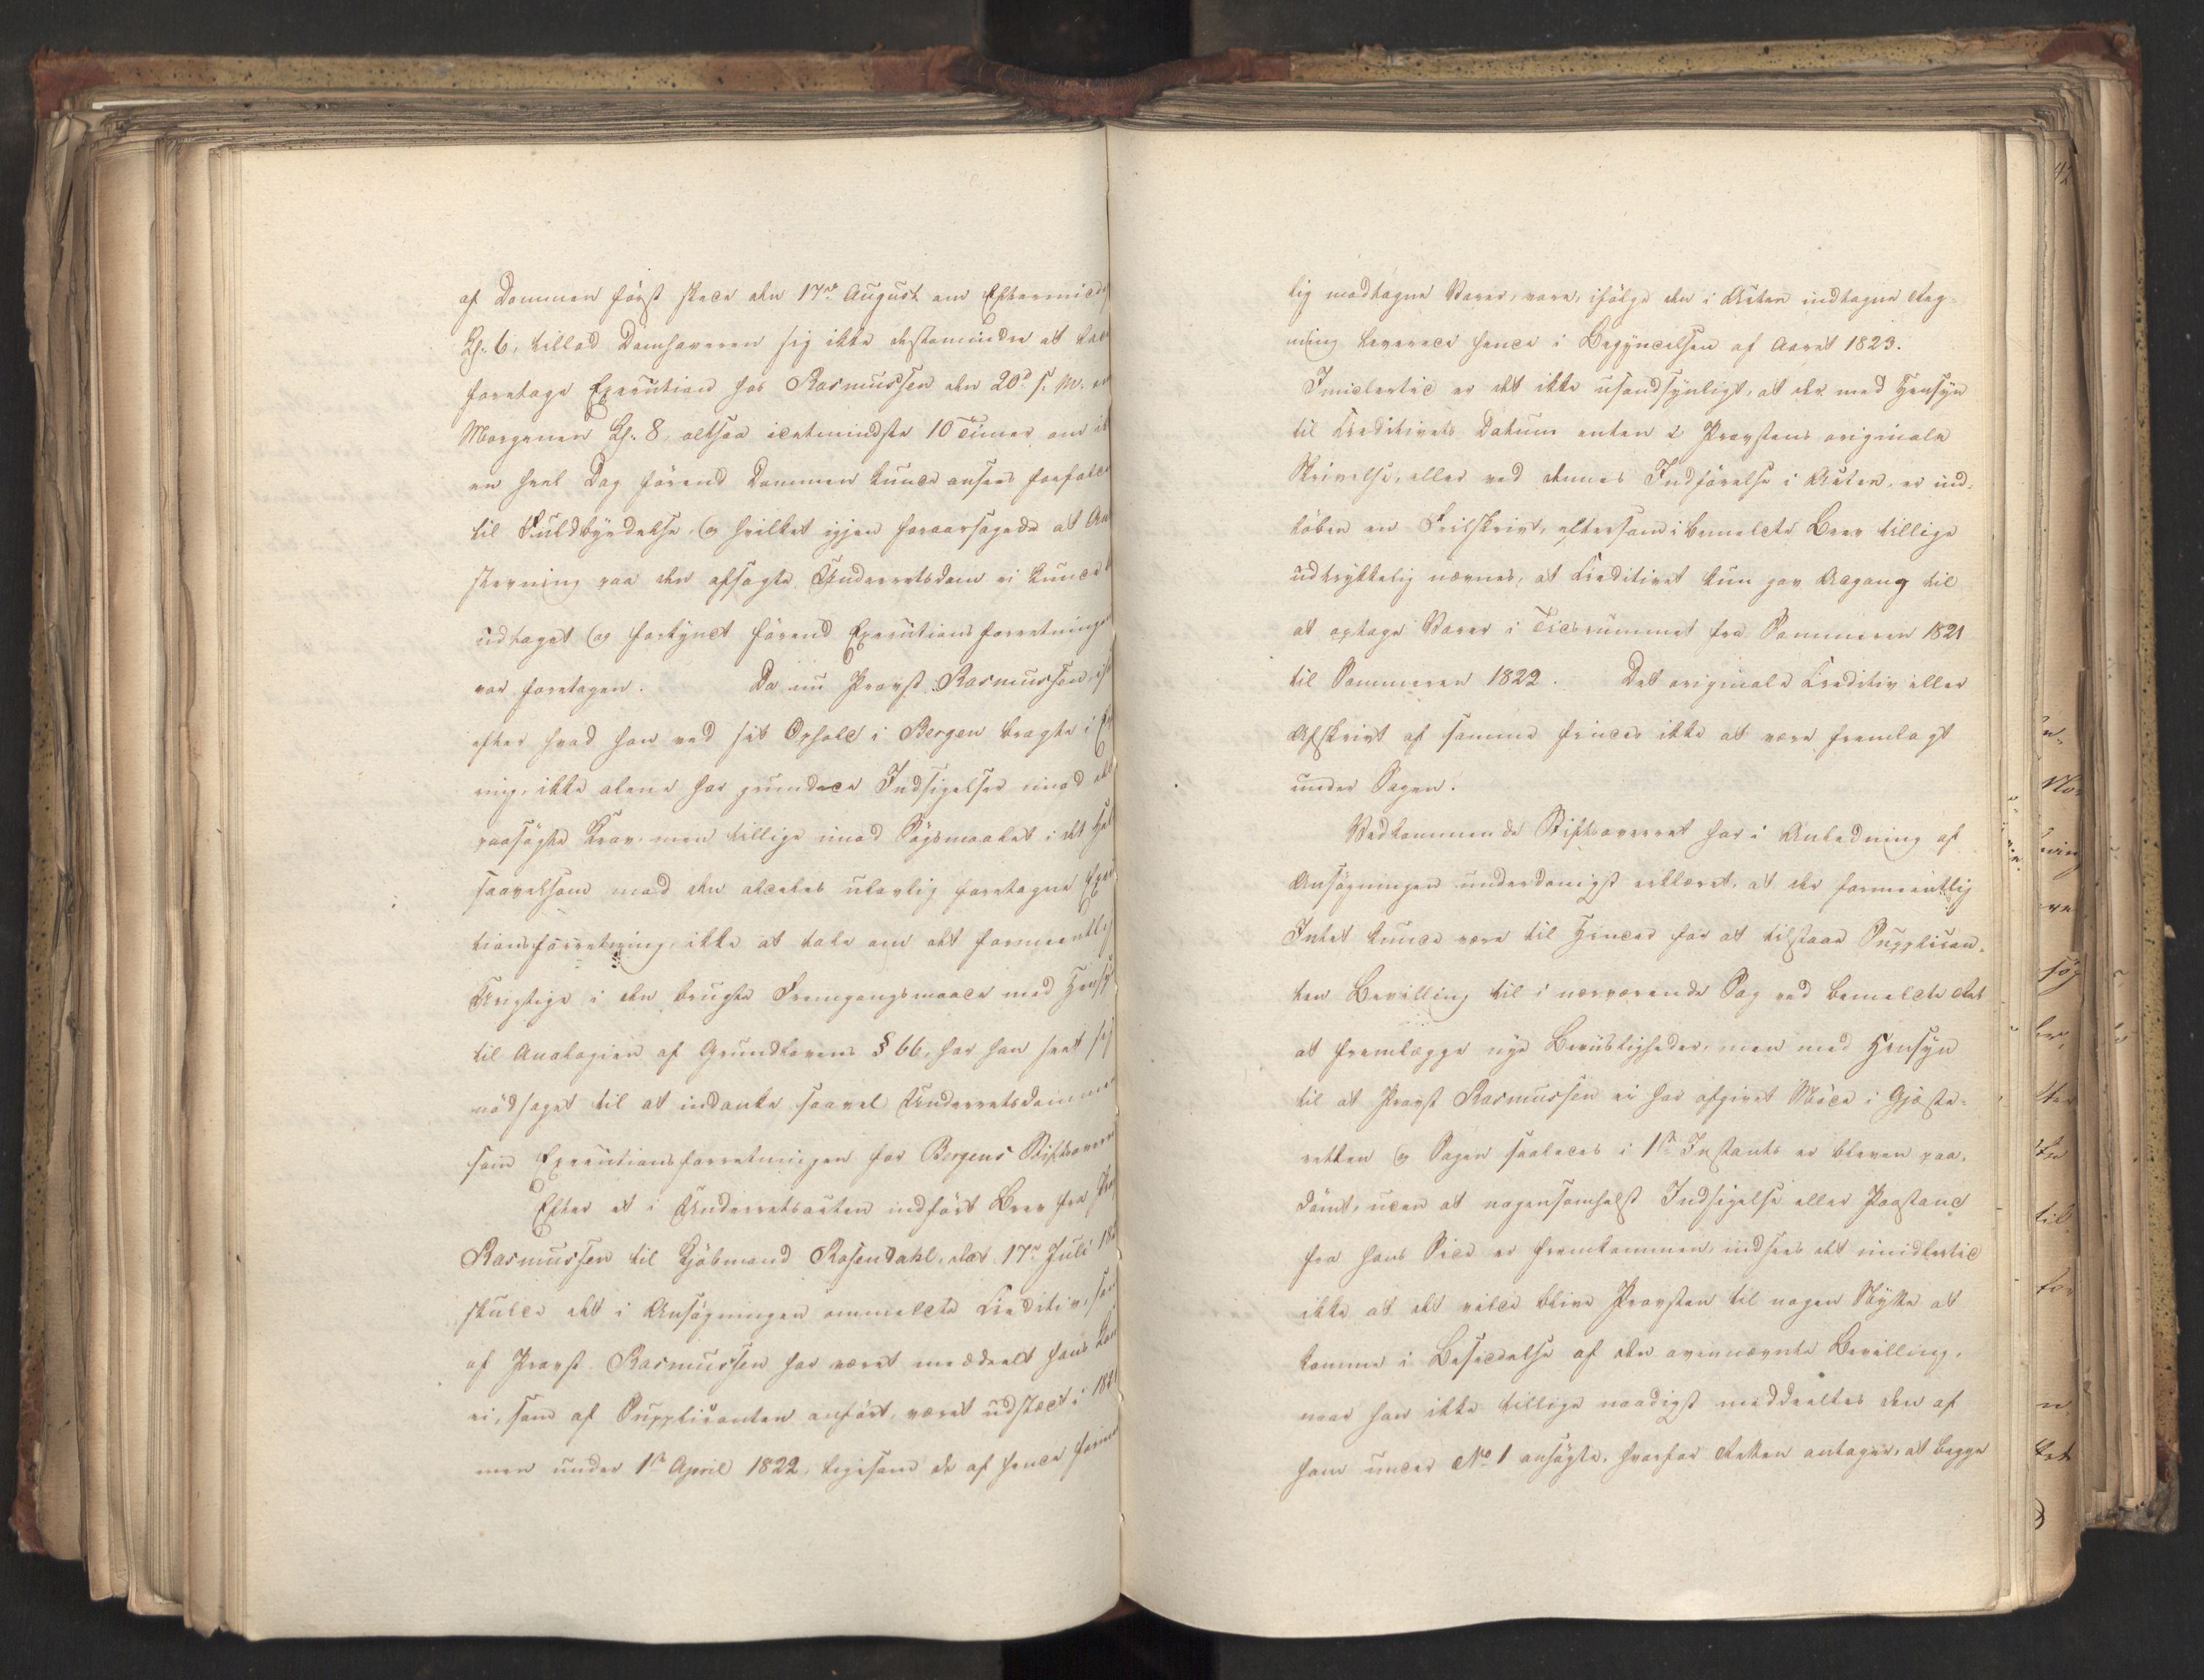 af Dommen først skede den 17de August om Eftermidd
Kl. 6, tillod Domhaveren sig ikke destomindre at lade
foretage Execution hos Rasmussen den 20d s. M. om
Morgenen Kl. 8, altsaa idetmindste 10 Timer om ik
en heel Dag førend Dommen kunde ansees forfalde
til Fuldbyrdelse, og hvilket igjen foraarsagede at
stevning paa den afsagte Underretsdom ei kunde
udtaget og forkyndt førend Executionsforretningen
var foretagen. Da nu Provst Rasmussen,
efter hvad han ved sit Ophold i Bergen bragte i
ring, ikke alene har grundede Indsigelser imod det
paasøgte Krav, men tillige imod Søgsmaalet i det
saavelsom mod den aldeles ulovlig foretagne Exe
tionsforretning, ikke at tale om det formeentlig
Urigtige i den brugte Fremgangsmaade med Hensyn
til Analogien af Grundlovens § 66, har han seet sig
nødsaget til at indanke saavel Underretsdommen
som Executionsforretningen for Bergens Stiftsoverret
Efter et i Underretsacten indført Brev fra
Rasmussen til Kjøbmand Rosendahl, dat. 17de Juli 182
skulde det i Ansøgningen ommeldte Creditiv, som
af Provst Rasmussen har været meddeelt hans
ei, som af Supplicanten anført, været udstædt i 1821
men under 1ste April 1822, ligesom de af hende
lig modtagne Varer, vare, ifølge den i Acten indtagne Reg-
ning leverede hende i Begyndelsen af Aaret 1823.
Imidlertid er det ikke usandsynligt, at der med Hensyn
til Creditivets Datum enten i Provstens originale
Skrivelse, eller ved dennes Indførelse i Acten, er ind-
løben en Feilskrivt, eftersom i bemeldte Brev tillige
udtrykkelig nævnes, at Creditivet kun gav Adgang til
at optage Varer i Tidsrummet fra Sommeren 1821
til Sommeren 1822. Det originale Creditiv eller
Afskrivt af samme findes ikke at være fremlagt
under Sagen.
Vedkommende Stiftsoverret har i Anledning af
Ansøgningen underdanigst erklæret, at der formeentlig
Intet kunde være til Hinder for at tilstaae Supplican-
ten Bevilling til i nærværende Sag ved bemeldte Ret
at fremlægge nye Beviisligheder, men med Hensyn
til at Provst Rasmussen ei har afgivet Møde i Gjæste-
retten og Sagen saaledes i 1ste Instants er bleven paa-
dømt, uden at nogensomhelst Indsigelse eller Paastand
fra hans Side er fremkommen, indsees det imidlertid
ikke at det vilde blive Provsten til nogen Nytte at
komme i Besiddelse af den ovennævnte Bevilling,
naar han ikke tillige naadigst meddeeltes den af
ham under No 1 ansøgte, hvorfor Retten antager, at begge